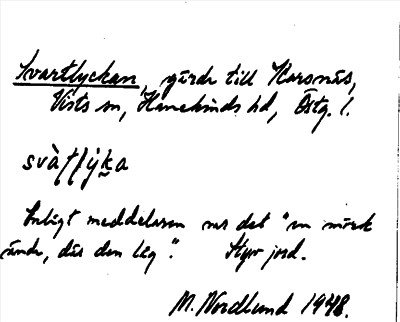 Svartlyckan, gärde till Korsnäs,
Vists sn, Hanekinds hd, Östg. l.
svàʈɭýka
Enligt meddelaren var det "en mörk
ände, där den låg". Styv jord.
M. Nordlund 1948.